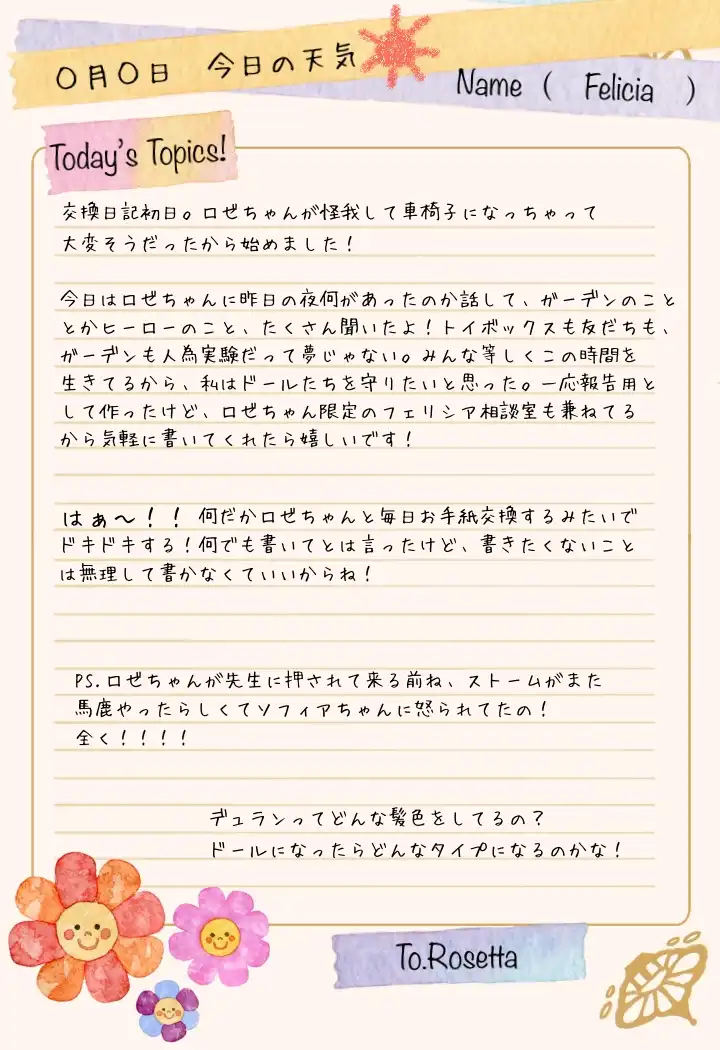 〇月〇日 今日の天気
Name ( Felicia )
Today's Topics!
交換日記初日。ロゼちゃんが怪我して車椅子になっちゃって
大変そうだったから始めました！
今日はロゼちゃんに昨日の夜何があったのか話して、ガーデンのこと
とかヒーローのこと、たくさん聞いたよ！トイボックスも友だちも、
ガーデンも人為実験だって夢じゃない。みんな等しくこの時間を
生きてるから、私はドールたちを守りたいと思った。一応報告用と
して作ったけど、ロゼちゃん限定のフェリシア相談室も兼ねてる
から気軽に書いてくれたら嬉しいです！
はぁ〜！！ 何だかロゼちゃんと毎日お手紙交換するみたいで
ドキドキする！何でも書いてとは言ったけど、書きたくないこと
は無理して書かなくていいからね！
PS.ロゼちゃんが先生に押されて来る前ね、ストームがまた
馬鹿やったらしくてソフィアちゃんに怒られてたの！
全く！！！！
デュランってどんな髪色をしてるの？
ドールになったらどんなタイプになるのかな！
To.Rosetta